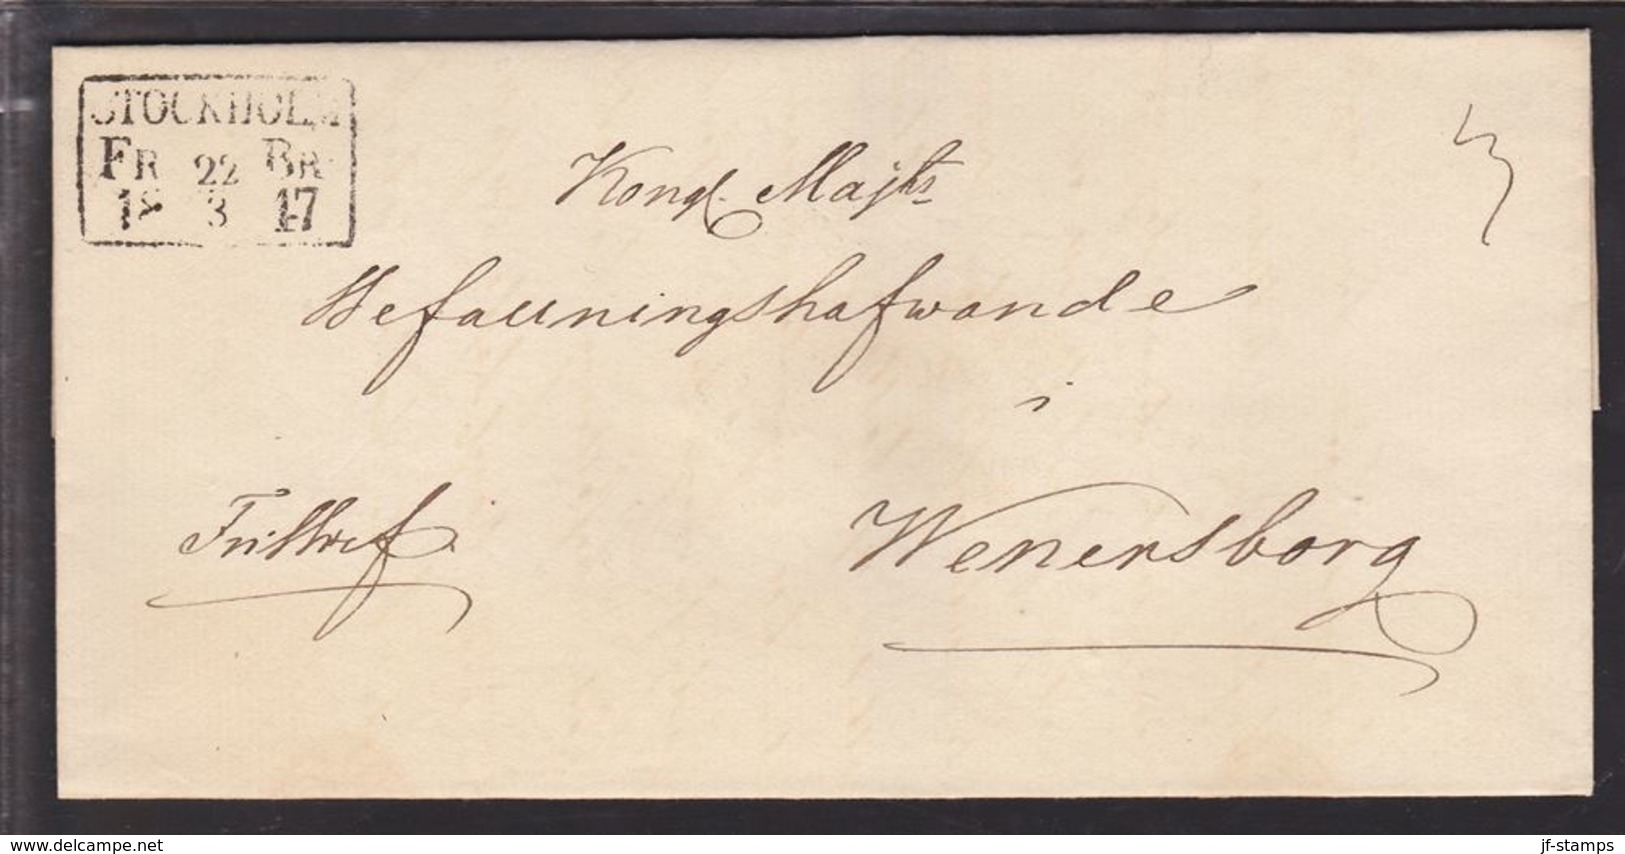 STOCKHOLM
FR 22 BR
18 3 47
Kongl. Majts
Befallningshafwande
i
Fribref
Wenersborg
delcampe.net
jf-stamps